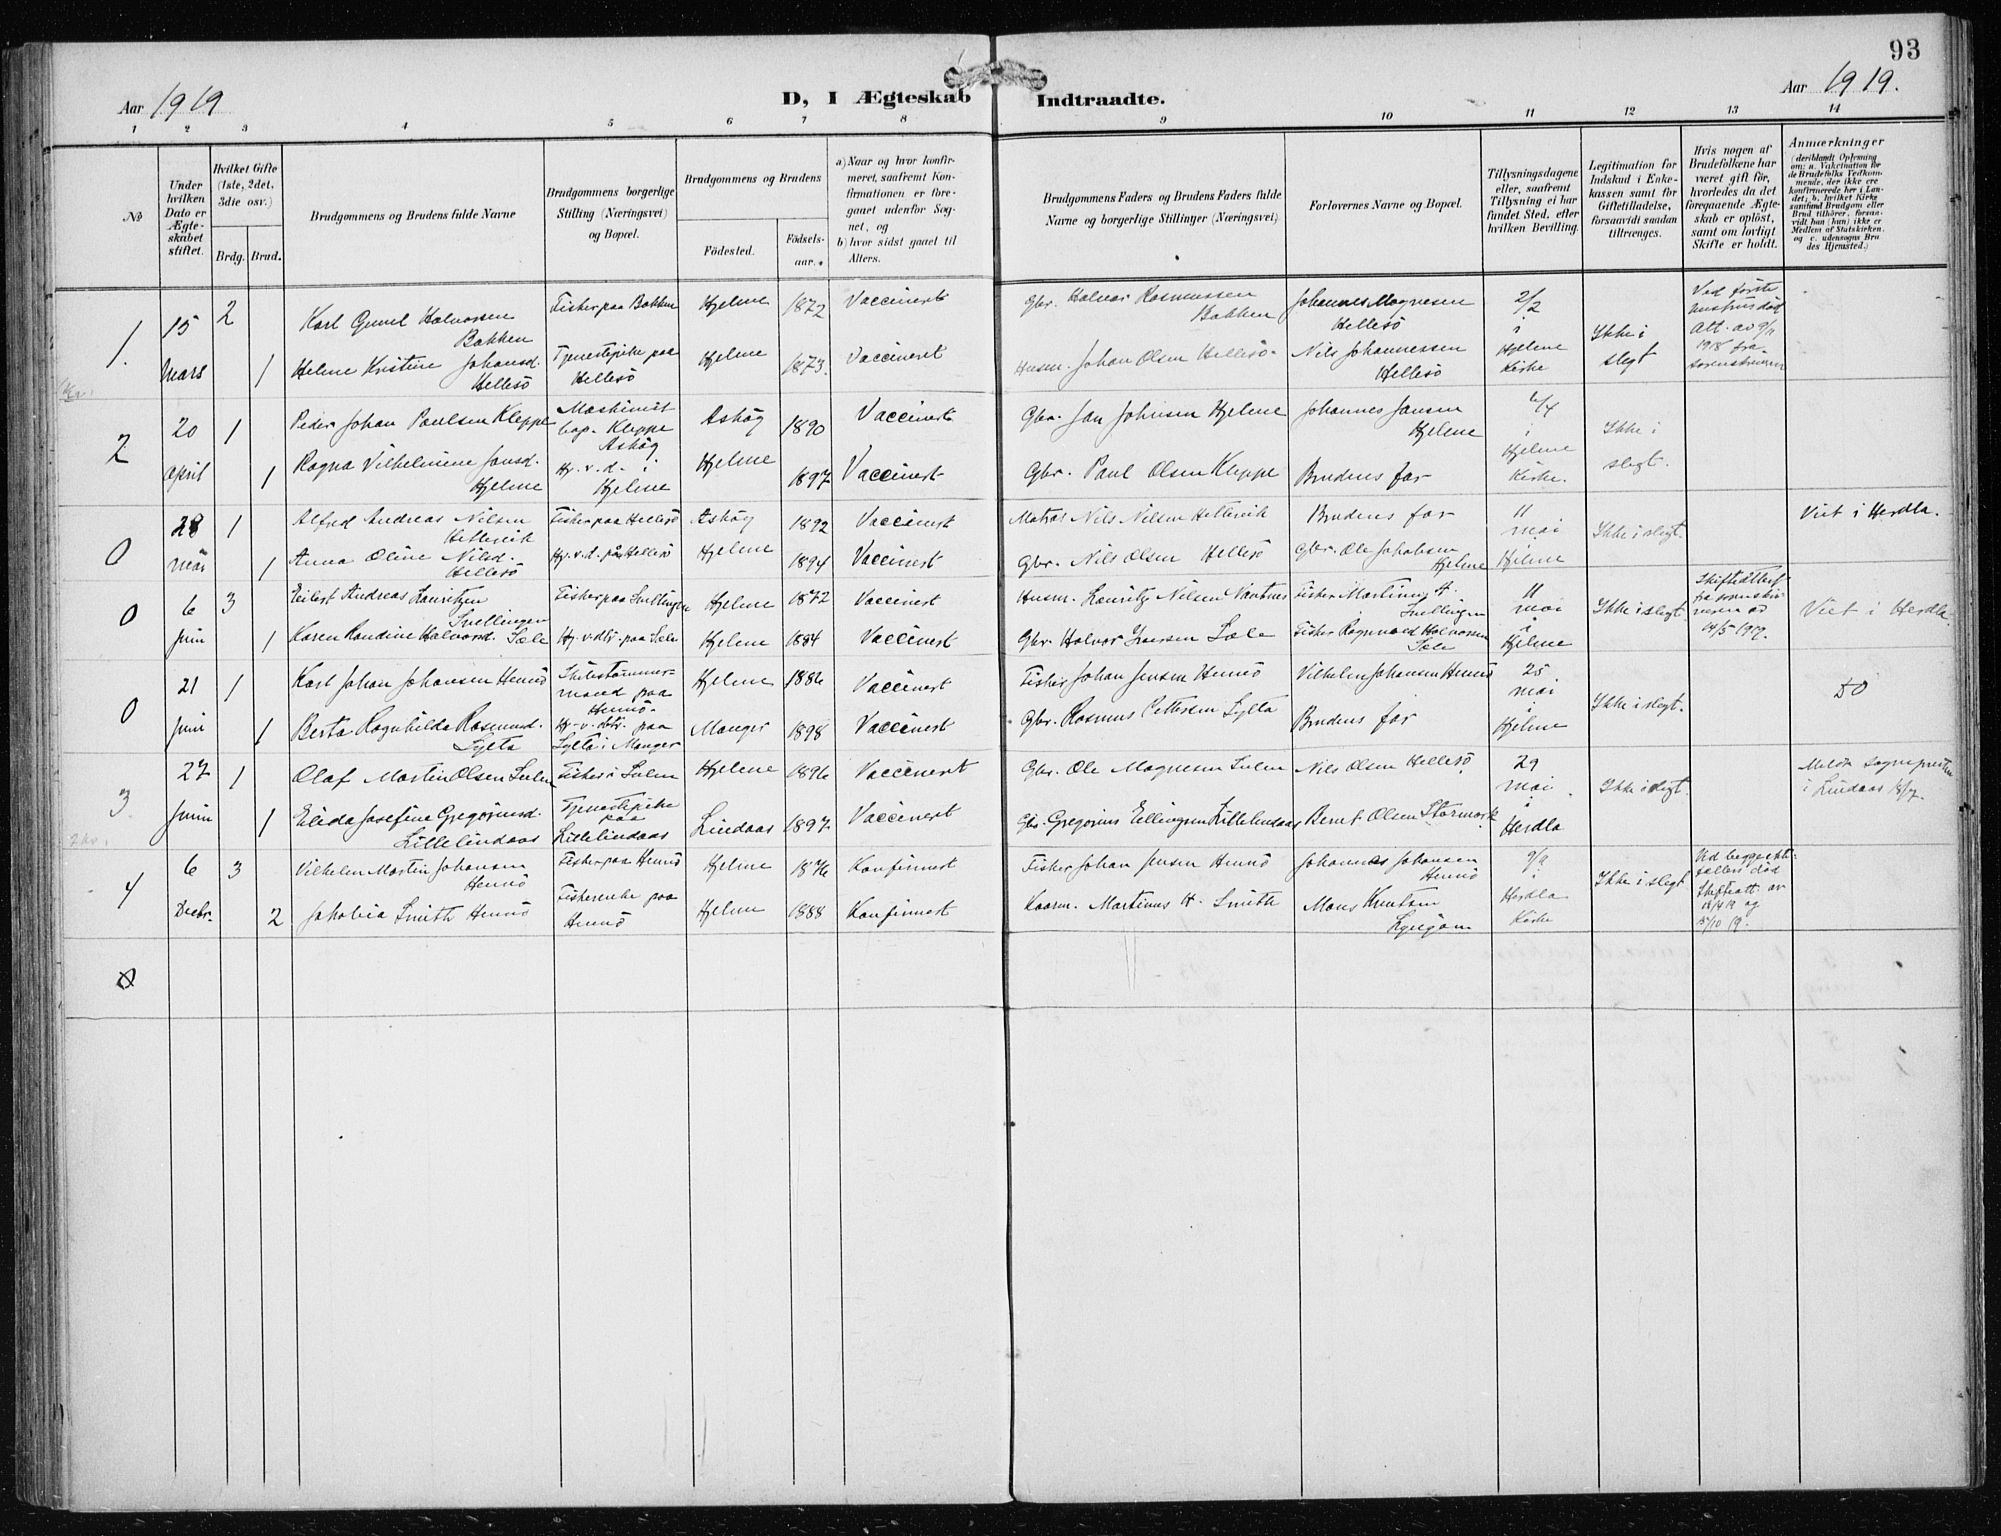 93
Aar 1919
D, I Ægteskab Indtraadte.
Aar 1919.
1 2 3 4 5 6 7 8 9 10 11 12 13 14
№
Under hvilken Dato er Ægteskabet stiftet.
Hvilket Gifte (1ste, 2det, 3die osv.)
Brdg. Brud.
Brudgommens og Brudens fulde Navne
Brudgommens borgerlige Stilling (Næringsvei) og Bopæl.
Brudgommens og Brudens
Fødested. Fødselsaar.
a) Naar og hvor konfirmeret, saafremt Konfirmationen er foregaaet udenfor Sognet, og
b) hvor sidst gaaet til Alters.
Brudgommens Faders og Brudens Faders fulde Navne og borgerlige Stillinger (Næringsvei)
Forlovernes Navne og Bopæl.
Tillysningsdagene eller, saafremt Tillysning ei har fundet Sted, efter hvilken Bevilling.
Legitimation for Indskud i Enkekassen samt for Giftetilladelse, forsaavidt saadan tiltrænges.
Hvis nogen af Brudefolkene har været gift før, hvorledes da det foregaaende Ægteskab er opløst, samt om lovligt Skifte er holdt.
Anmærkninger
(deriblandt Oplysning om: a. Vakcination for de Brudefolks Vedkommende, der ikke ere konfirmerede her i Landet; b. hvilket Kirkesamfund Brudgom eller Brud tilhører, forsaavidt han (hun) ikke er Medlem af Statskirken, og c. udensogns Brudes Hjemsted.)
1. 15 2 Karl Gunel Halvorsen Bakken Fisker paa Bakken Hjelme 1872 Vaccinert Gbr. Halvor Rasmussen Bakken Johannes Magnesen Hellesö 2/2 i Hjelme Kirke Ikke i slegt Ved første hustrus død Att. av 9/11 1918 fra sorenskriveren
Mars 1 Helene Kristine Johansd. Hellesö Tjenestepike paa Hellesö Hjelme 1873. Vaccineret Husm. Johan Olsen Hellesö Nils Johannessen Hellesö
2 20 1 Peder Johan Paulsen Kleppe Maskinist bop. Kleppe Askög 1890 Vaccinert Gbr. Jan Johnsen Hjelme Johannes Jansen Hjelme 6/4 i Hjelme Kirke. Ikke i slegt.
april 1 Ragna Vilhelmine Jansd. Hjelme Hj. v. d. i Hjelme Hjelme 1897 Vaccinert Gbr. Paul Olsen Kleppe Brudens far
0 28 1 Alfred Andreas Nilsen Hellevik Fisker paa Hellesö Askög 1892 Vaccinert Matros Nils Nilsen Hellevik Brudens far 11 mai i Hjelme Ikke i slegt. Viet i Herdla.
mai 1 Anna Oline Nilsd. Hellesö Hj. v. d. på Hellesö Hjelme 1894 Vaccinert Gbr. Nils Olsen Hellesö Gbr. Ole Jakobsen Hjelme
0 6 3 Eilert Andreas Lauritzen Snellingen Fisker paa Snellingen Hjelme 1872 Vaccinert Husm. Lauritz Nilsen Fisker Martinus H. Snellingen 11 mai i Hjelme Ikke i slegt. Skifteattest fra sorenskriveren av 14/5 1919. Viet i Herdla.
Juni 1 Karen Randine Halvorsd. Sæle Hj. v. dtr. paa Sæle Hjelme 1884 Vaccinert Gbr. Halvor Iversen Sæle Fisker Ragnvald Halvorsen Sæle
0 21 1 Karl Johan Johansen Hennö Skibstömmermand paa Hennö Hjelme 1886 Vaccinert Fisker Johan Jensen Hennö Vilhelm Johansen Hennö 25. mai i Hjelme Ikke i slegt. DO
Juni 1 Berta Ragnhilda Rasmusd. Sylta Hj. v. dtr. paa Sylta i Manger Manger 1898 Vaccinert Gbr. Rasmus Pettersen Sylta Brudens far
3. 27 1 Olaf Martin Olsen Sulen Fisker i Sulen Hjelme 1896 Vaccinert Gbr. Ole Magnesen Sulen Nils Olsen Hellesö 29 mai i Herdla Ikke i slegt. Meldt Sognepresten i Lindaas 18/7.
Juni 1 Elida Josefine Gregoriusd. Lillelindaas Tjenestepike paa Lillelindaas Lindaas 1897 Vaccinert Gbr. Gregorius Ellingsen Lillelindaas Bernt Olsen Stormark
4 6 3 Vilhelm Martin Johansen Hennö Fisker paa Hennö Hjelme 1876 Konfirmert Fisker Johan Jensen Hennö Johannes Johansen Hennö 9/9 i Herdla Kirke Ikke i slegt Ved begge ektefællers død Skifteatt. av 18/4 19 og 25/10 19.
Decbr. 2 Jakobia Smith Hennö Fiskerenke paa Hennö Hjelme 1888 Konfirmert Kaarm. Martinus H. Smith Mons Knutsen
0